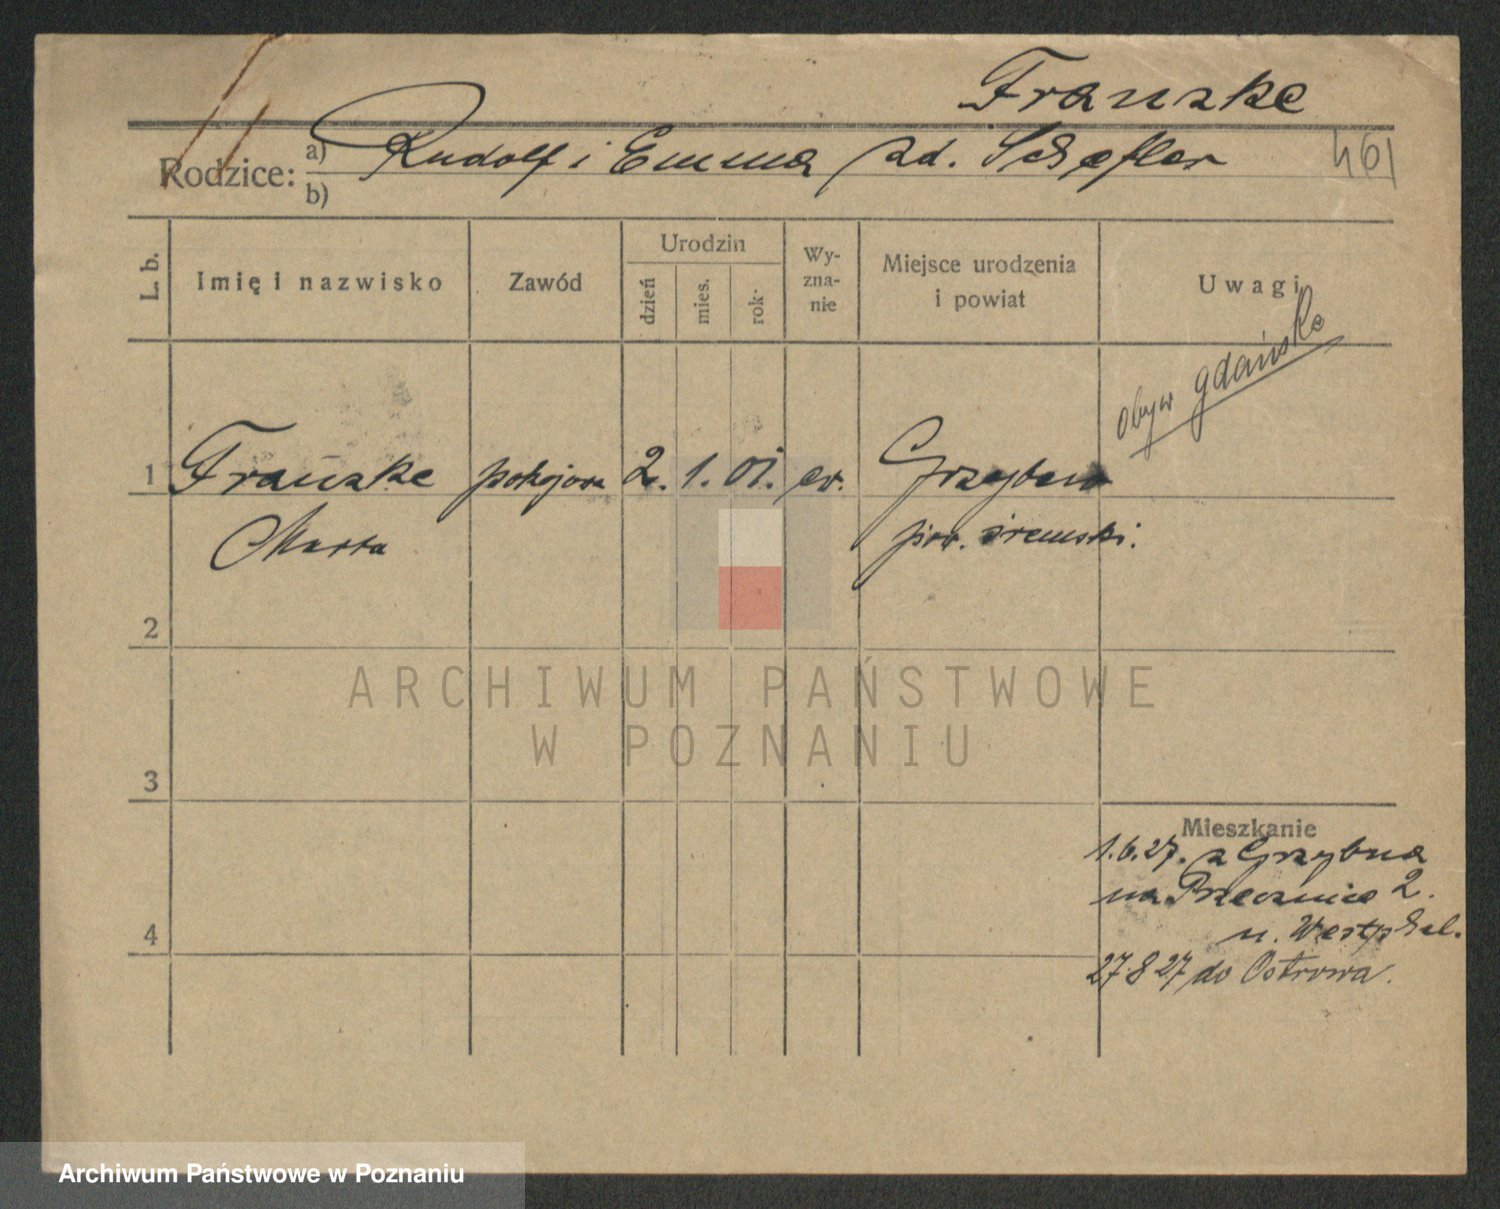 Franzke
Rodzice: a) Rudolf i Emma zd. Schefler
b)
461
L. b.
Imię i nazwisko
Zawód
Urodzin
dzień
mies.
rok
Wy-
zna-
nie
Miejsce urodzenia
i powiat
Uwagi
obyw gdańska
1 Franzke pokojowa 2. 1. 01. ew. Grzybno
Marta pow. śremski.
2
3
Mieszkanie
1.6.27. z Grzybna
na Przecznica 2.
u. Westphal.
4
27.8 27 do Ostrowa.
ARCHIWUM PAŃSTWOWE
W POZNANIU
Archiwum Państwowe w Poznaniu